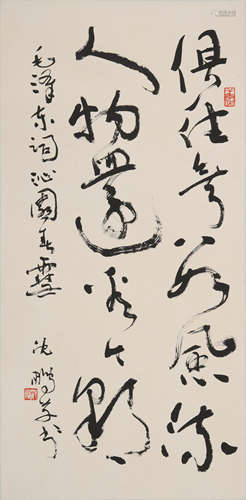 俱往矣数风流
人物還看今朝
毛泽东词沁園春雪
沈鹏草书